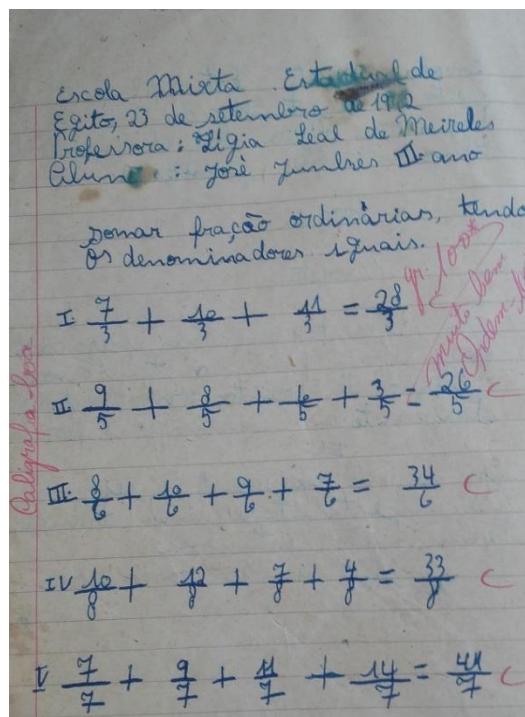 Escola Mixta Estadual de
Egito, 23 de setembro de 19
Professora: Lígia Leal de Meireles
Alun : José III ano
somar fração ordinárias, tendo
os denominadores iguais.
gr. 100
muito bem
Ordem
I 7/3 + 10/3 + 11/3 = 28/3 C
II 9/5 + 8/5 + 6/5 + 3/5 = 26/5 C
III 8/6 + 10/6 + 9/6 + 7/6 = 34/6 C
IV 10/8 + 12/8 + 7/8 + 4/8 = 33/8 C
V 7/7 + 9/7 + 11/7 + 14/7 = 41/7 C
Caligrafia boa